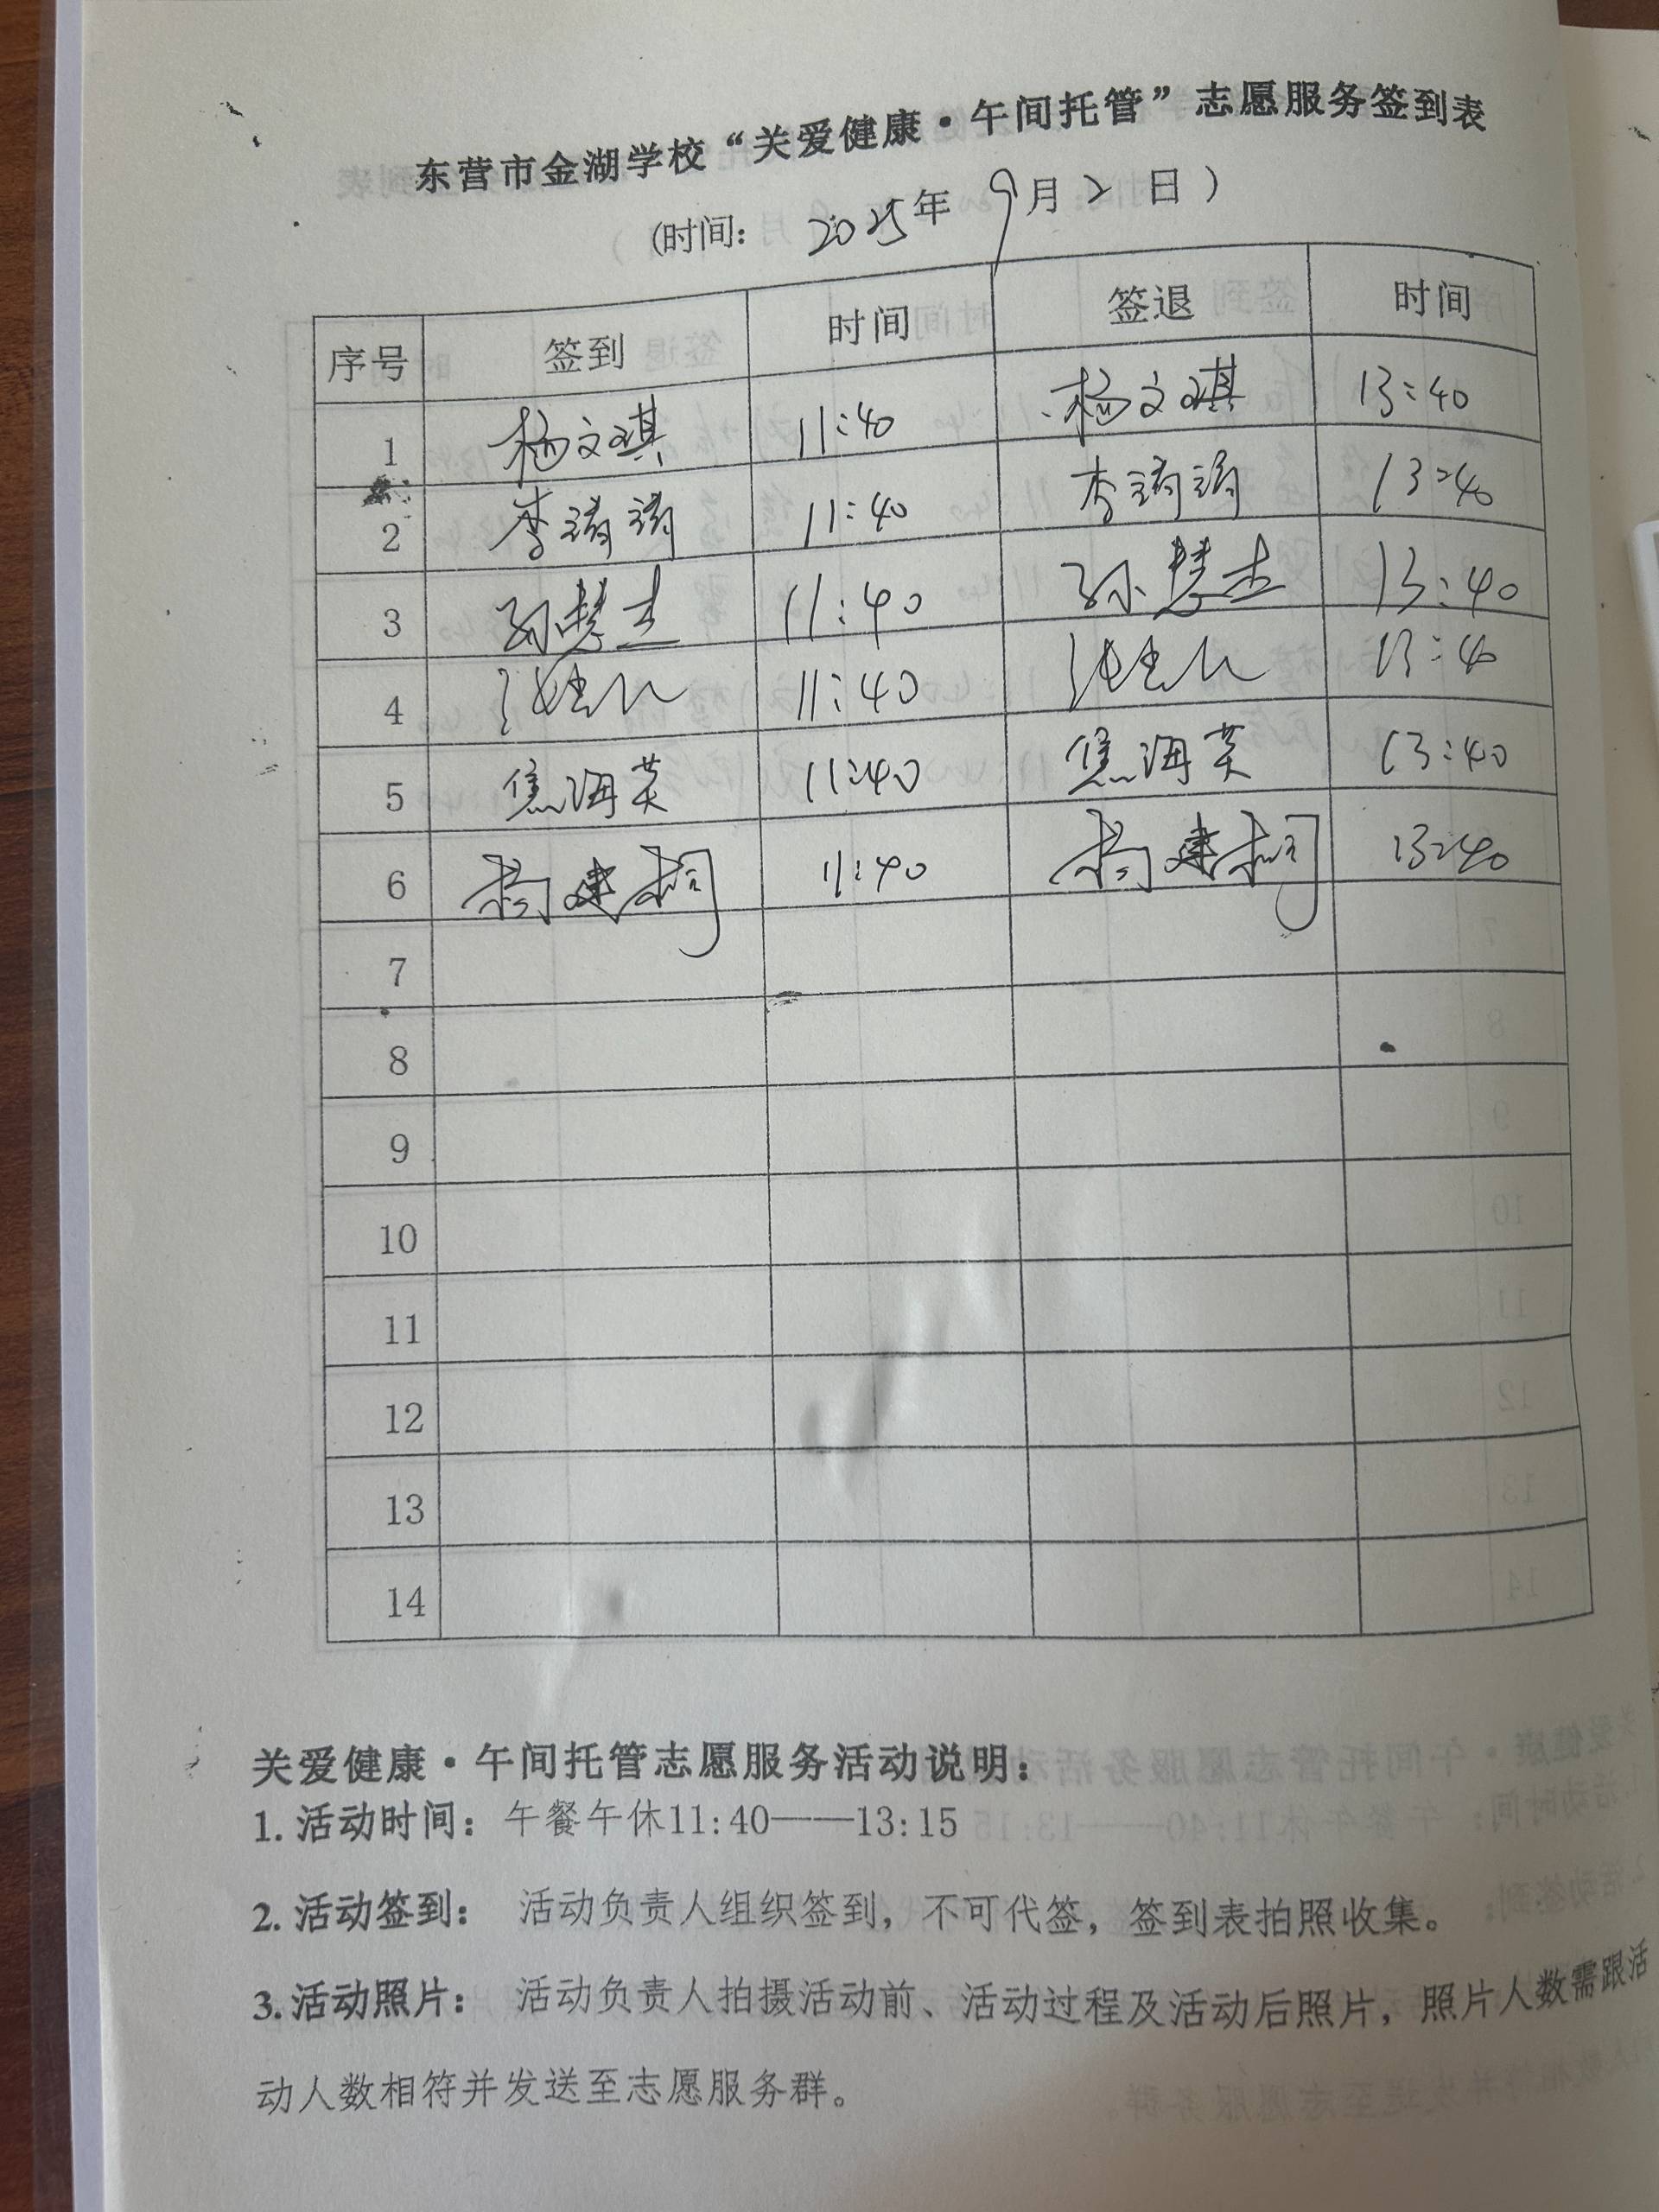 东营市金湖学校“关爱健康·午间托管”志愿服务签到表
(时间: 2025年9月2日)
序号 签到 时间 签退 时间
1 杨文琪 11:40 杨文琪 13:40
2 李清清 11:40 李清清 13:40
3 孙慧杰 11:40 孙慧杰 13:40
4 11:40 13:40
5 焦海英 11:40 焦海英 13:40
6 杨建桐 11:40 杨建桐 13:40
7
8
9
10
11
12
13
14
关爱健康·午间托管志愿服务活动说明:
1.活动时间: 午餐午休11:40——13:15
2.活动签到: 活动负责人组织签到,不可代签,签到表拍照收集。
3.活动照片: 活动负责人拍摄活动前、活动过程及活动后照片,照片人数需跟活
动人数相符并发送至志愿服务群。